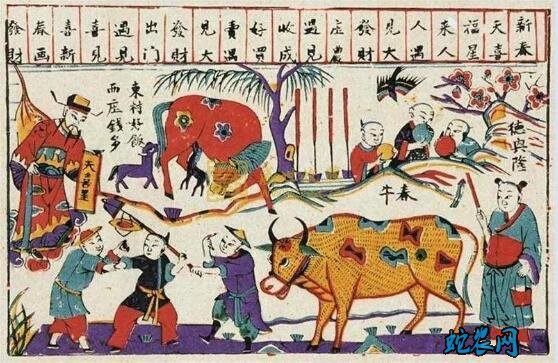 新春
天喜
福星
来人
人遇
見大
發財
農
遇見
收成
好買
貴遇
見大
發財
出门
遇見
喜見
喜新
春画
發財
德興隆
春牛
東村好飯
西庄錢多
天喜星
蛇农网